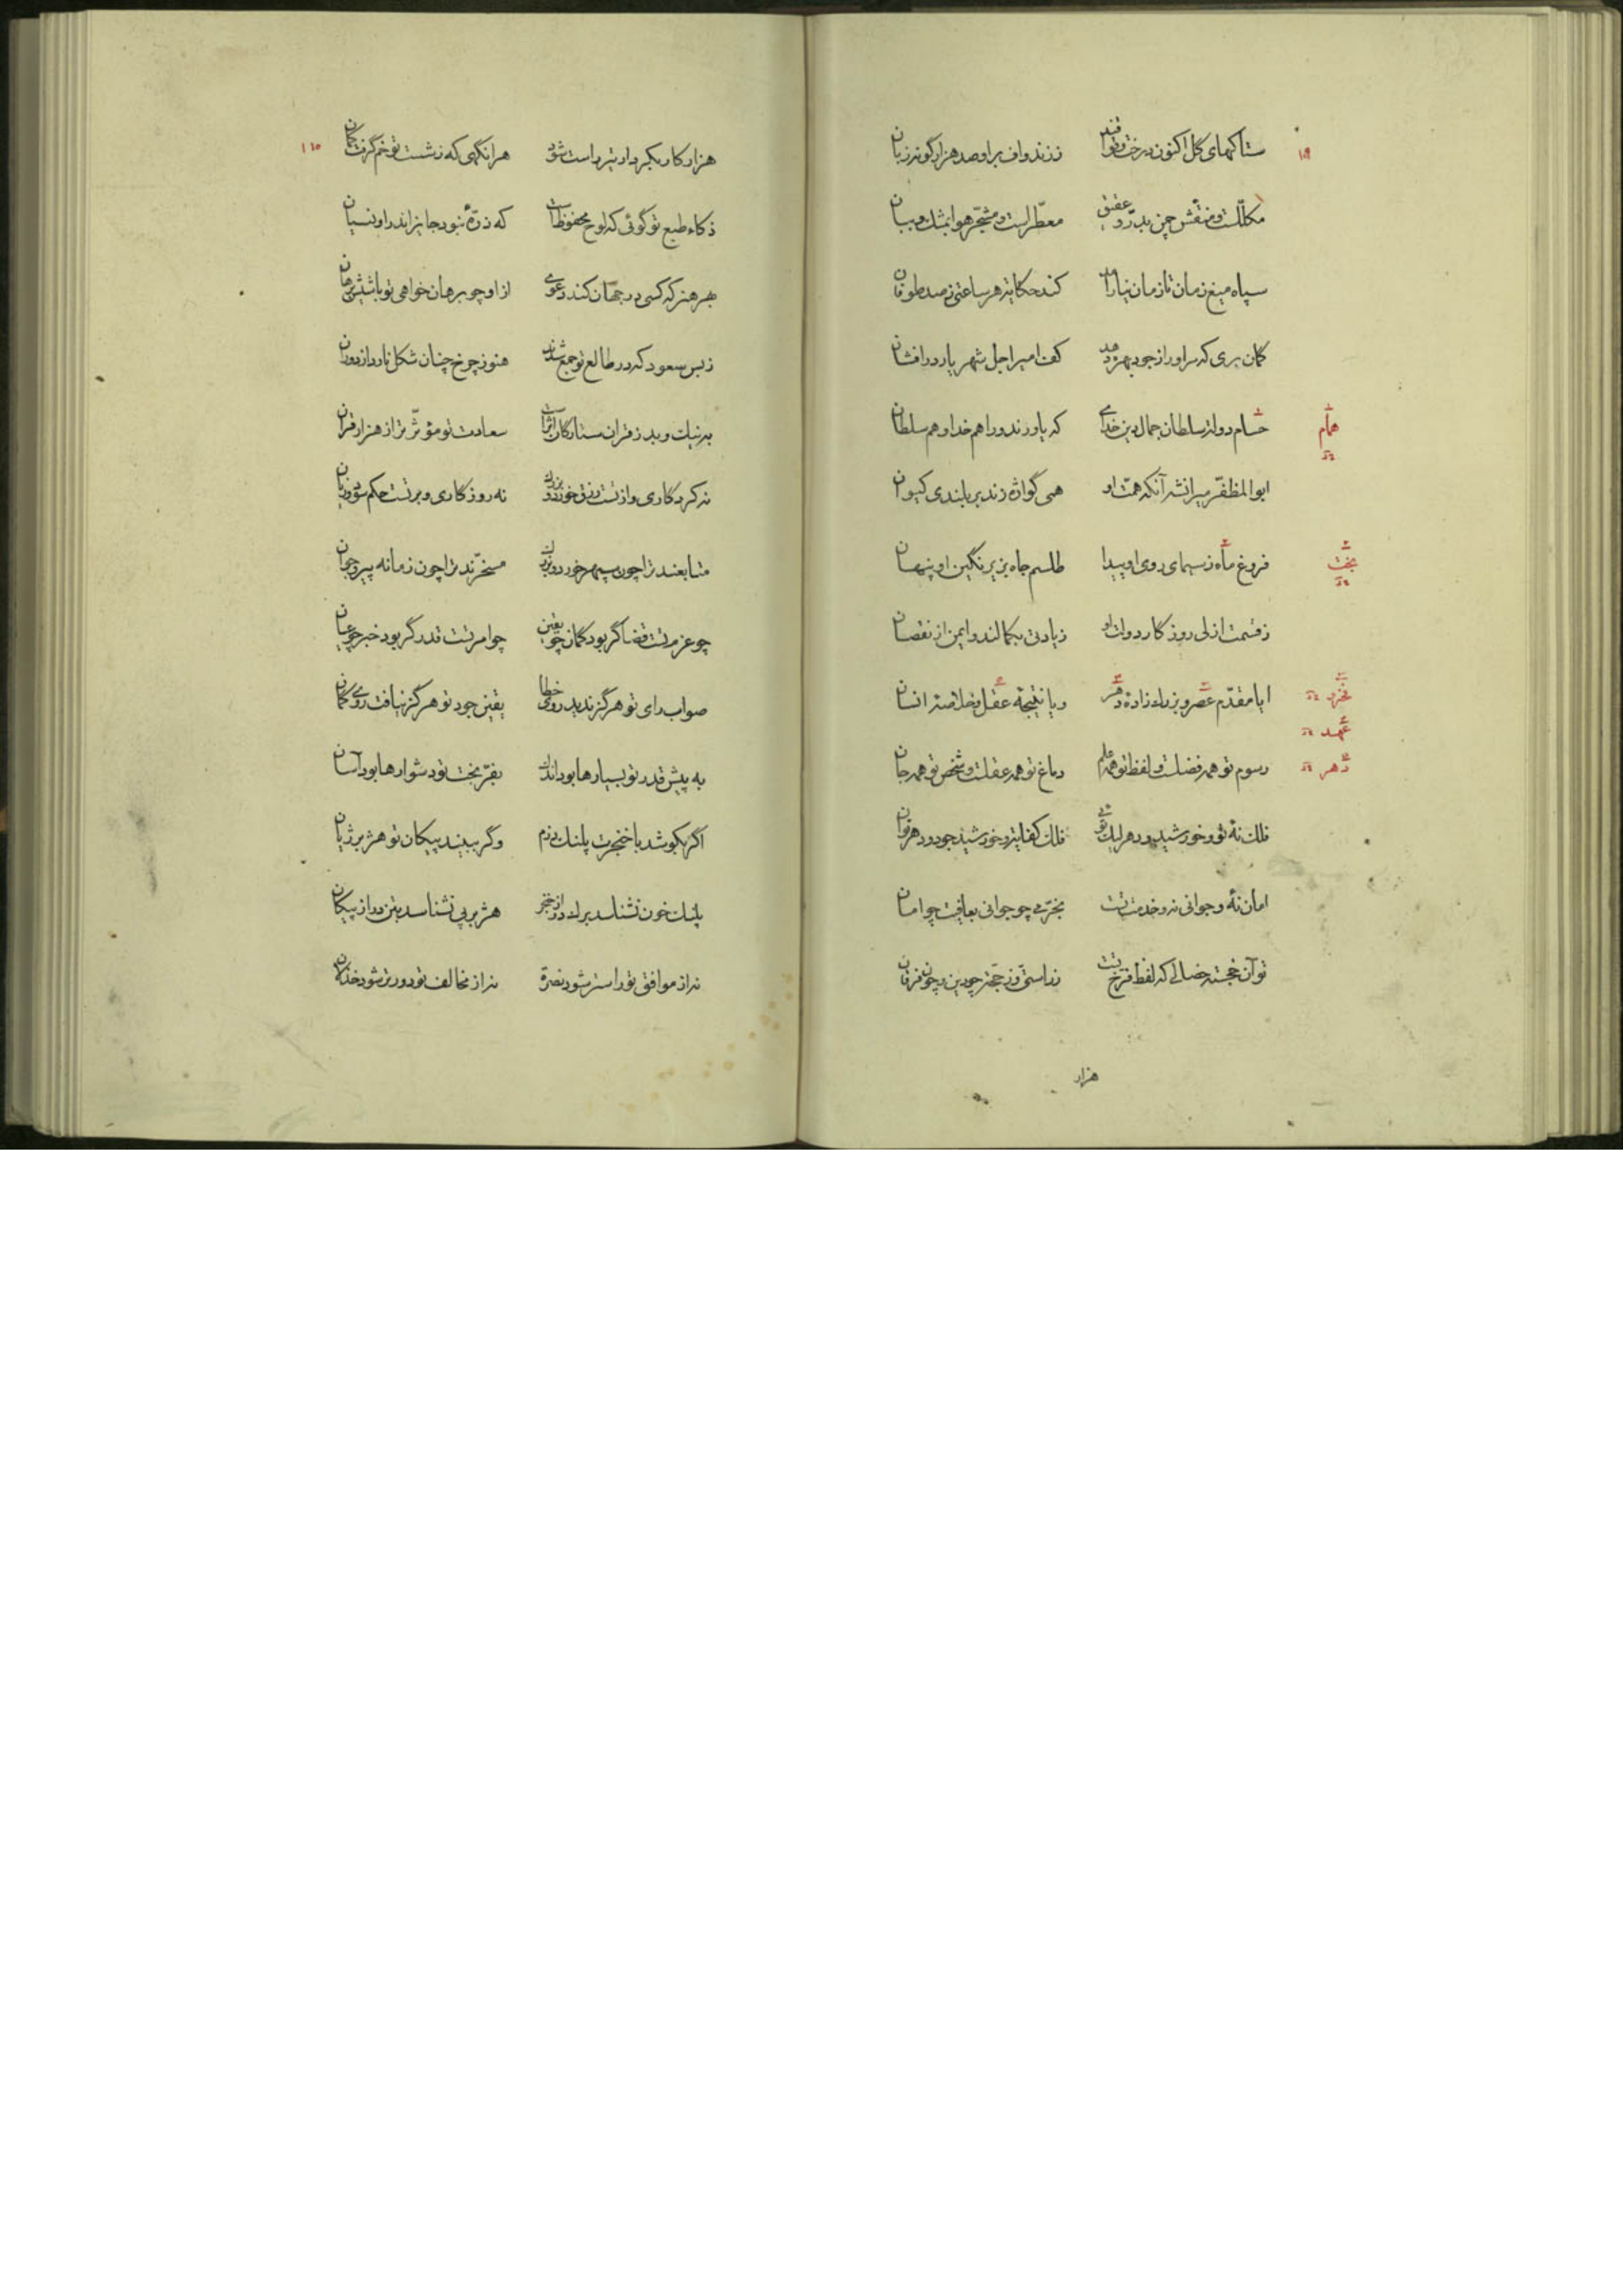 ستاکهای گل اکنون درخت وقواقند ززند واف براو صد هزار گونه زبان
مکللست و منقش چمن بدر و عقیق معطر است و مشجر هوا بمشک و ببان
سپاه میغ زمان تا زمان نیارامد کند حکایت هر ساعتی ز صد طوفان
گمان بری که مر او را ز جود بهره دهد کف امیر اجل شهریار در افشان
حسام دولت سلطان جمال دین خدای که یاورند ورا هم خدا و هم سلطان
همام
ابوالمظفر میرانشه آنکه همت او همی گواژه زند بر بلندی کیوان
فروغ ماه ز سیمای روی او پیدا طلسم جاه بزیر نگین او پنهان
بخت
ز قسمت ازلی روزگار دولت او زیادتی بکمالند و ایمن از نقصان
ایا مقدم عصر و بزرگ زادهٔ دهر و یا نتیجهٔ عقل و خلاصهٔ انسان
خرد
عهد
رسوم تو همه فضلست و لفظ تو همه علم دماغ تو همه عقلست و شخص تو همه جان
دهر
فلک نهٔ تو و خورشید و در هر یک توی فلک کفایت و خورشید جود و دهر توان
امان نهٔ و جوانی نه و خدمت تست بخرمی چو جوانی بعافیت چو امان
تو آن خجسته خصالی که لفظ فرخ تست ز راستی و ز حجت چو دین و چون فرقان
هزار
هزار کار بکردار تیر راست شود هر انگهی که ز شست تو خم گرفت کمان
ذکاء طبع تو گوئی که لوح محفوظ است که ذرهٔ نبود جایز اندر او نسیان
بهر هنر که کسی در جهان کند دعوی از او چو برهان خواهی تو باشیش برهان
ز بس سعود که در طالع تو جمع شدند هنوز چرخ چنان شکل نارد از دوران
به نیک و بد ز قران ستارگان اثر است سعادت تو مؤثر تر از هزار قران
نه کردگاری و از تست رزق خورد و بزرگ نه روزگاری و بر تست حکم سود و زیان
متابعند ترا چون سپهر خورد و بزرگ مسخرند ترا چون زمانه پیر و جوان
چو عزم تست قضا گر بود گمان چو یقین چو امر تست قدر گر بود خبر چو عیان
صواب رای تو هرگز ندید روی خطا یقین جود تو هرگز نیافت روی گمان
به پیش قدر تو بسیارها بود اندک بفر بخت تو دشوارها بود آسان
اگر بکوشد با خنجرت پلنگ دژم وگر ببیند پیکان تو هژبر ژیان
پلنگ خون نشناسد برگ در از خنجر هژبر پی نشناسد بتن در از پیکان
نه از موافق تو راستر شود نصرة نه از مخالف تو دورتر شود خذلان